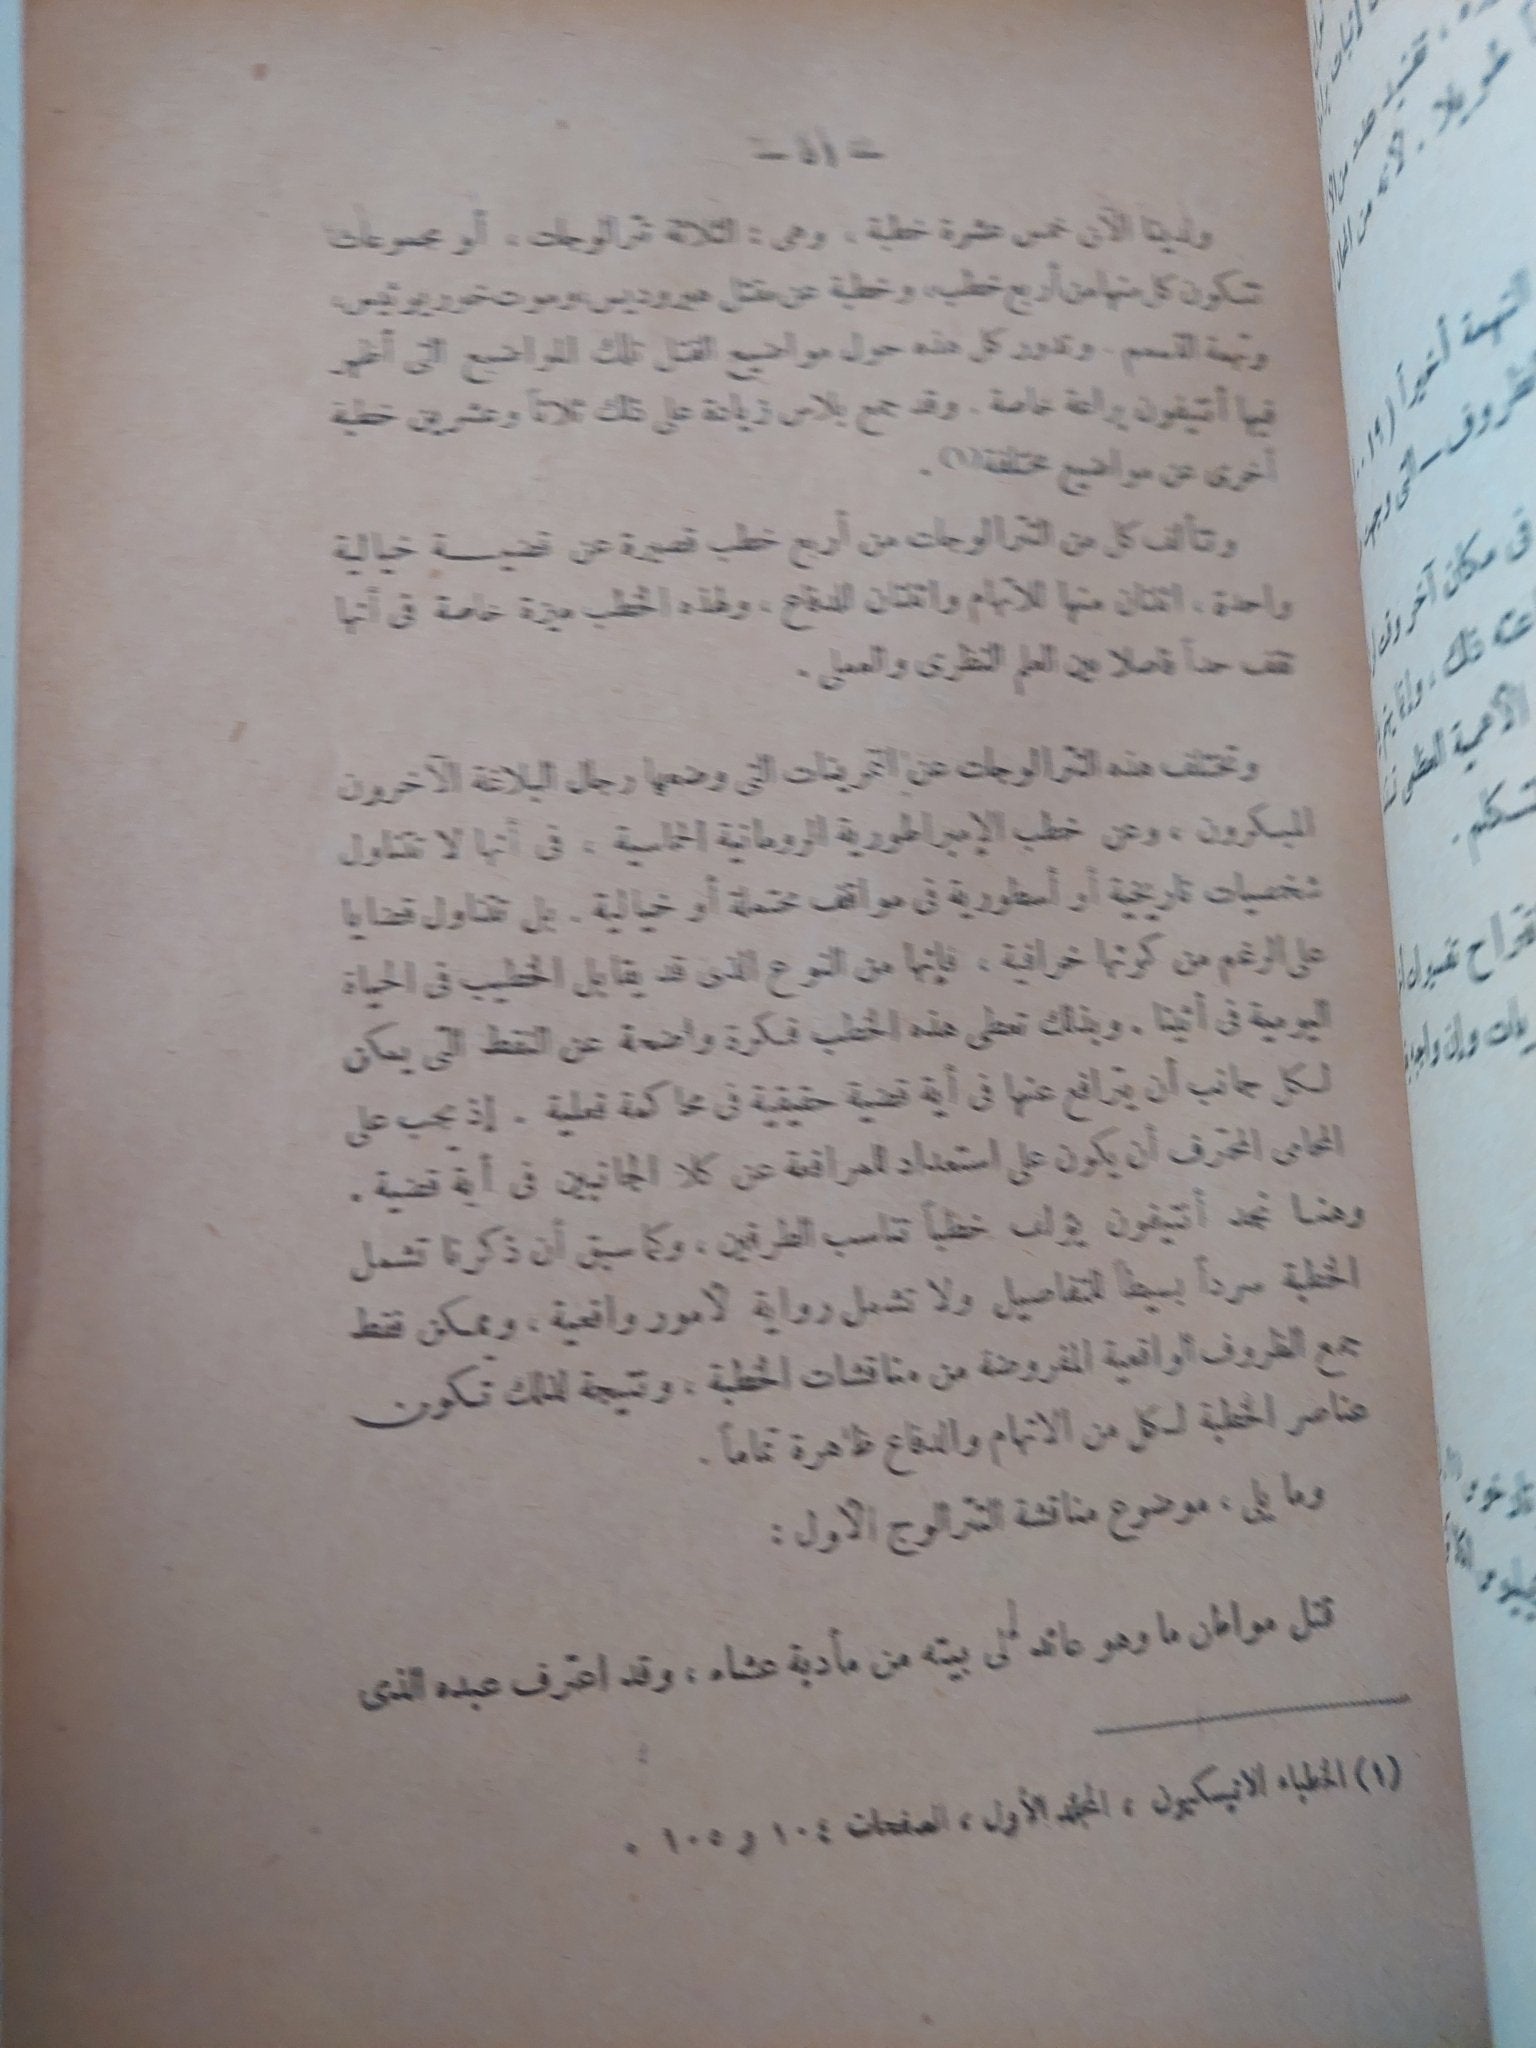 — ٥١ —
ولدينا الآن خمس عشرة خطبة ، وهى : الثلاثة ترالوجات ، أو مجموعات
تتكون كل منها من أربع خطب، وخطبة عن مقتل هيروديس، وموت خوريوتيس،
وتهمة القسم . وتدور كل هذه حول مواضيع القتل تلك المواضيع التى أظهر
فيها أنتيفون براعة خاصة . وقد جمع بلاس زيادة على تلك ثلاثاً وعشرين خطبة
أخرى عن مواضيع مختلفة(١) .
وتتألف كل من التترالوجات من أربع خطب قصيرة عن قضيـــة خيالية
واحدة ، اثنتان منها للاتهام واثنتان للدفاع ، ولهذه الخطب ميزة خاصة فى أنها
تقف حداً فاصلا بين العلم النظرى والعملى .
وتختلف هذه التترالوجات عن التمرينات التى وضعها رجال البلاغة الآخرون
المبكرون ، وعن خطب الإمبراطورية الرومانية الحماسية ، فى أنها لا تتناول
شخصيات تاريخية أو أسطورية فى مواقف محتملة أو خيالية . بل تتناول قضايا
على الرغم من كونها خرافية ، فإنها من النوع الذى قد يقابل الخطيب فى الحياة
اليومية فى أثينا . وبذلك تعطى هذه الخطب فكرة واضحة عن النقط التى يمكن
لكل جانب أن يترافع عنها فى أية قضية حقيقية فى محاكمة فعلية . إذ يجب على
المحامى المحترف أن يكون على استعداد للمرافعة عن كلا الجانبين فى أية قضية .
وهنـا نجد أنتيفون يؤلف خطباً تناسب الطرفين ، وكما سبق أن ذكرنا تشمل
الخطبة سرداً بسيطاً للتفاصيل ولا تشمل رواية لأمور واقعية ، ويمكن فقط
جمع الظروف الواقعية المفروضة من مناقشات الخطبة ، ونتيجة لذلك تكون
عناصر الخطبة لكل من الاتهام والدفاع ظاهرة تماماً .
وما يلى ، موضوع مناقشة التترالوج الأول :
قتل مواطن ما وهو عائد إلى بيته من مأدبة عشاء ، وقد اعترف عبده الذى
(١) الخطباء الاتيكيون ، المجلد الأول ، الصفحات ١٠٤ و ١٠٥ .